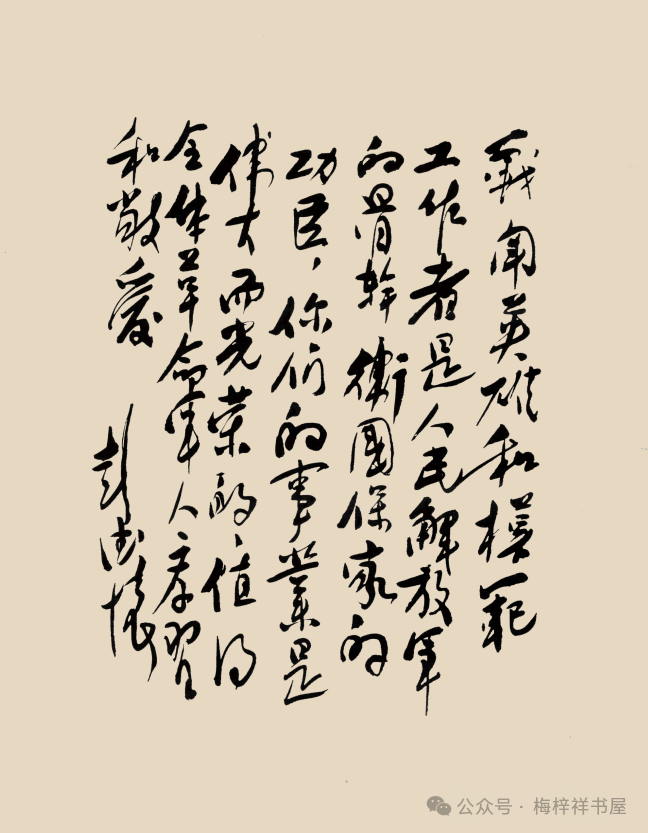 战闘英雄和模範
工作者是人民解放軍
的骨幹衛國保家的
功臣，你们的事業是
偉大而光荣的，值得
全体革命軍人学習
和敬爱
彭德懷
公众号·梅梓祥书屋